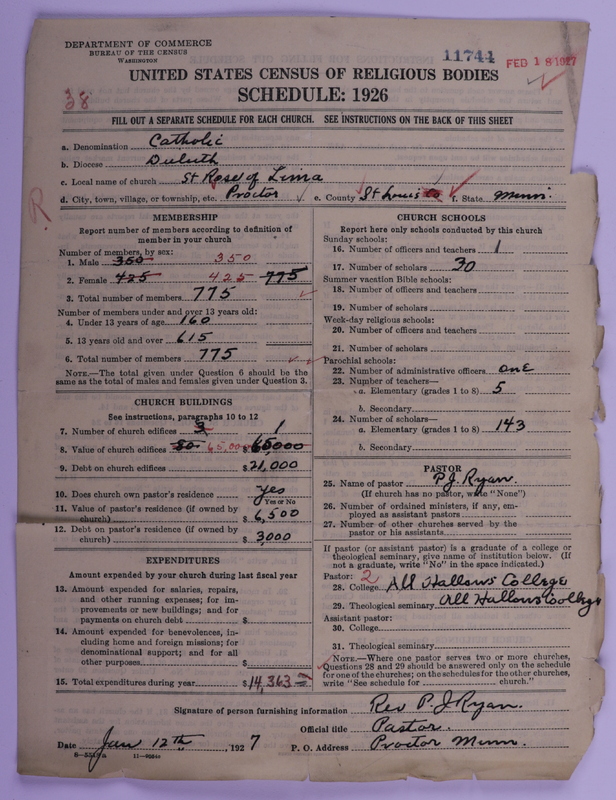 DEPARTMENT OF COMMERCE
BUREAU OF THE CENSUS
WASHINGTON
11744
FEB 18 1927
UNITED STATES CENSUS OF RELIGIOUS BODIES
38
SCHEDULE: 1926
FILL OUT A SEPARATE SCHEDULE FOR EACH CHURCH. SEE INSTRUCTIONS ON THE BACK OF THIS SHEET
a. Denomination Catholic
b. Diocese Duluth
c. Local name of church St Rose of Lima
d. City, town, village, or township, etc. Proctor e. County St Louis Co f. State Minn.
R
MEMBERSHIP
Report number of members according to definition of
member in your church
Number of members, by sex:
1. Male 350 350
2. Female 425 425 775
3. Total number of members 775
Number of members under and over 13 years old:
4. Under 13 years of age 160
5. 13 years old and over 615
6. Total number of members 775
NOTE.—The total given under Question 6 should be
same as the total of males and females given under Question 3.
CHURCH BUILDINGS
See instructions, paragraphs 10 to 12
7. Number of church edifices 3 1
8. Value of church edifices 50 65,000 $ 65,000
9. Debt on church edifices $ 21,000
10. Does church own pastor's residence yes
(Yes or No)
11. Value of pastor's residence (if owned by
church) $ 6,500
12. Debt on pastor's residence (if owned by
church) $ 3,000
EXPENDITURES
Amount expended by your church during last fiscal year
13. Amount expended for salaries, repairs,
and other running expenses; for im-
provements or new buildings; and for
payments on church debt $
14. Amount expended for benevolences, in-
cluding home and foreign missions; for
denominational support; and for all
other purposes $
15. Total expenditures during year $ 14,363
CHURCH SCHOOLS
Report here only schools conducted by this church
Sunday schools:
16. Number of officers and teachers 1
17. Number of scholars 30
Summer vacation Bible schools:
18. Number of officers and teachers
19. Number of scholars
Week-day religious schools:
20. Number of officers and teachers
21. Number of scholars
Parochial schools:
22. Number of administrative officers one
23. Number of teachers—
a. Elementary (grades 1 to 8) 5
b. Secondary
24. Number of scholars—
a. Elementary (grades 1 to 8) 143
b. Secondary
PASTOR
25. Name of pastor P. J. Ryan.
(If church has no pastor, write "None")
26. Number of ordained ministers, if any, em-
ployed as assistant pastors
27. Number of other churches served by the
pastor or his assistants
If pastor (or assistant pastor) is a graduate of a college or
theological seminary, give name of institution below. (If
not a graduate, write "No" in the space indicated.)
Pastor: 2
28. College All Hallows College
29. Theological seminary All Hallows College
Assistant pastor:
30. College
31. Theological seminary
NOTE.—Where one pastor serves two or more churches,
Questions 28 and 29 should be answered only on the schedule
for one of the churches; on the schedules for the other churches,
write "See schedule for church."
Signature of person furnishing information Rev P. J. Ryan.
Official title Pastor.
Date Jan 12th, 1927 P. O. Address Proctor Minn.